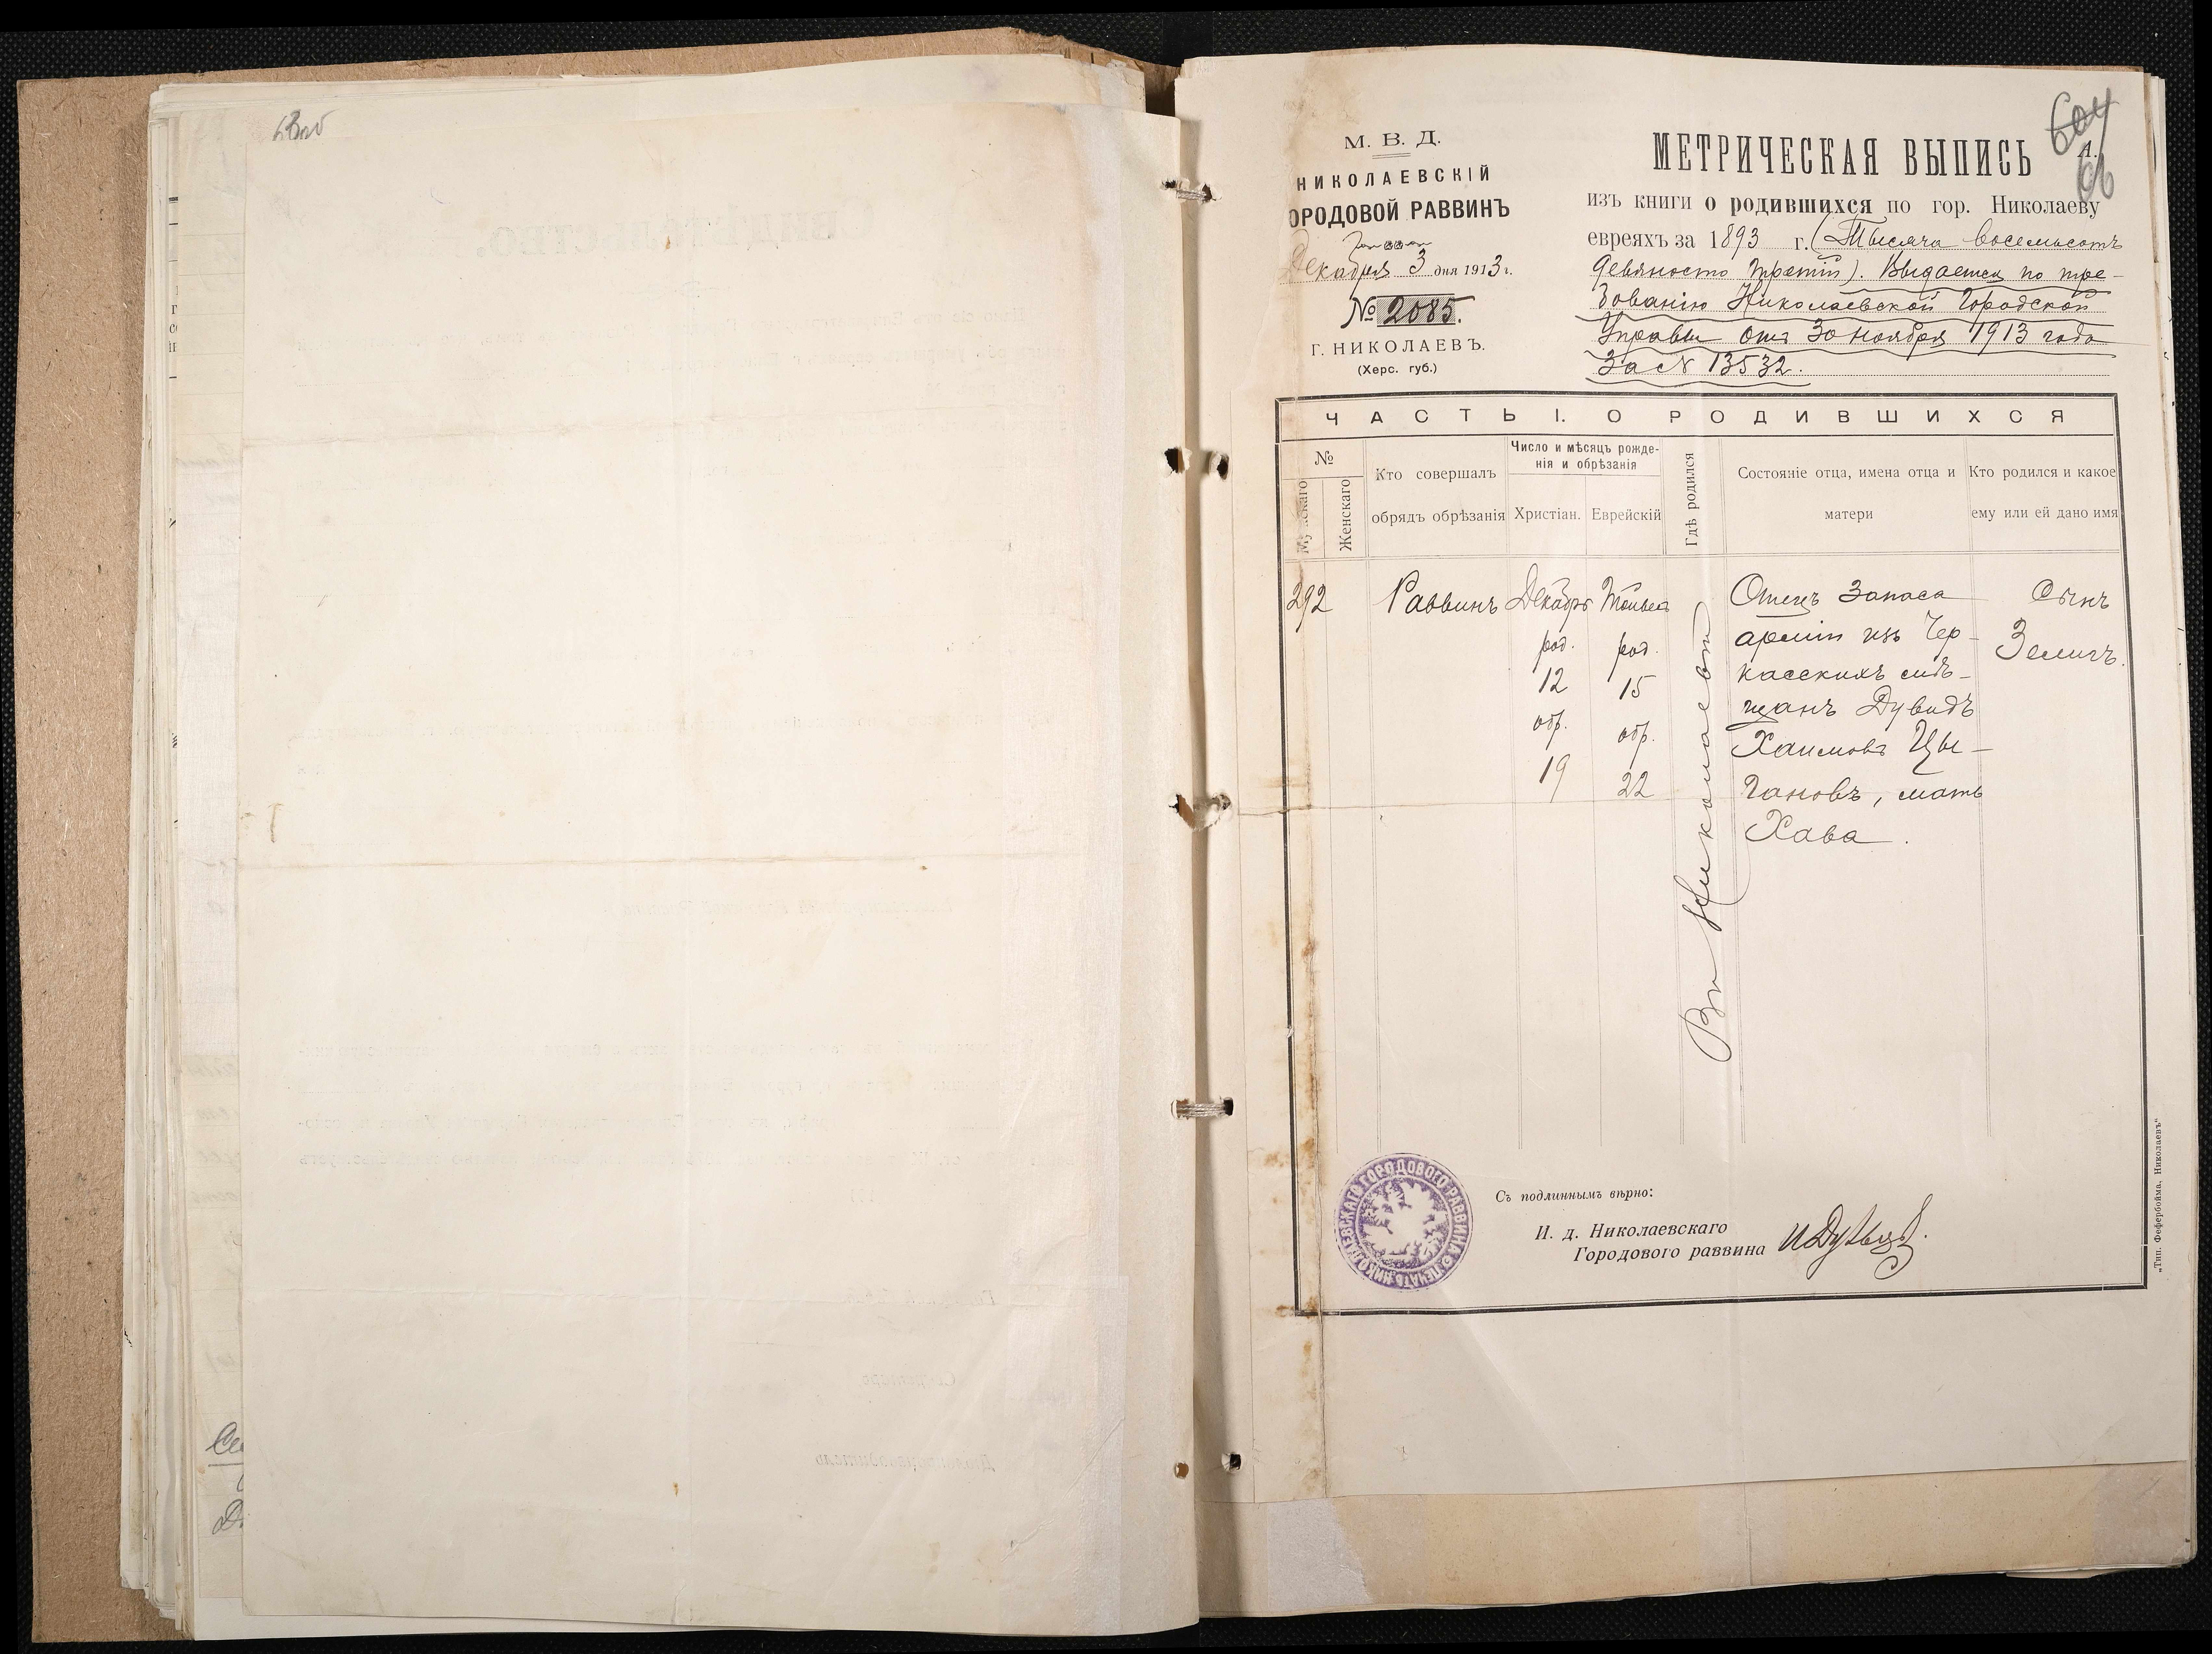 М. В. Д.
НИКОЛАЕВСКІЙ
ОРОДОВОЙ РАВВИНЪ
Декабря 3 дня 1913 г.
№ 2085.
Г. НИКОЛАЕВЪ.
(Херс. губ.)
604
66
МЕТРИЧЕСКАЯ ВЫПИСЬ
изъ книги о родившихся по гор. Николаеву
евреяхъ за 1893 г. (Тысяча восемьсотъ
девяносто третій). Выдается по тре-
бованію Николаевской Городской
Управы отъ 30 ноября 1913 года
За № 13532.
ЧАСТЬ I. О РОДИВШИХСЯ
№
Мужскаго
Женскаго
Кто совершалъ
обрядъ обрѣзанія
Число и мѣсяцъ рожде-
нія и обрѣзанія
Христіан.
Еврейскій
Гдѣ родился
Состояніе отца, имена отца и
матери
Кто родился и какое
ему или ей дано имя
292
Раввинъ
Декабрь
род.
12
обр.
19
Тейвесъ
род.
15
обр.
22
Въ Николаевѣ
Отецъ запаса
арміи изъ Чер-
касскихъ мѣ-
щанъ Дувидъ
Хаимовъ Цы-
гановъ, мать
Хава.
Сынъ
Зелигъ.
НИКОЛАЕВСКАГО ГОРОДОВОГО РАВВИНА ПЕЧАТЬ
Съ подлиннымъ вѣрно:
И. д. Николаевскаго
Городового раввина
„Тип. Фефербойма, Николаевъ“